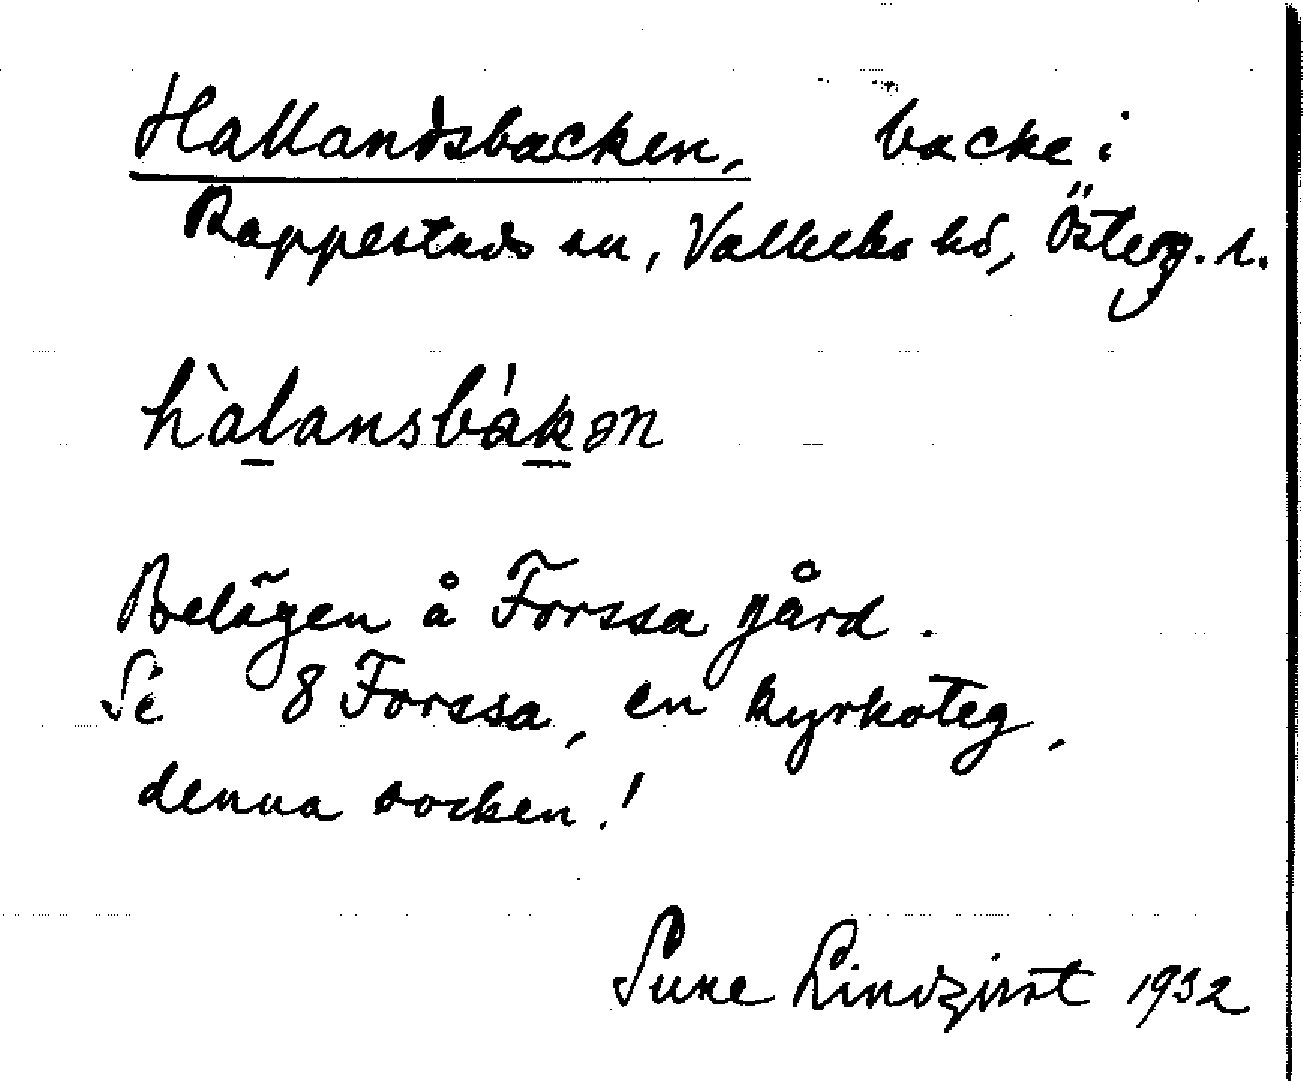 Hallandsbacken, backe i
Rappestads sn, Valkebo hd, Österg. l.
hàlansbákən
Belägen å Forssa gård.
Se 8 Forssa, en kyrkoteg,
denna socken!
Sune Lindqvist 1932